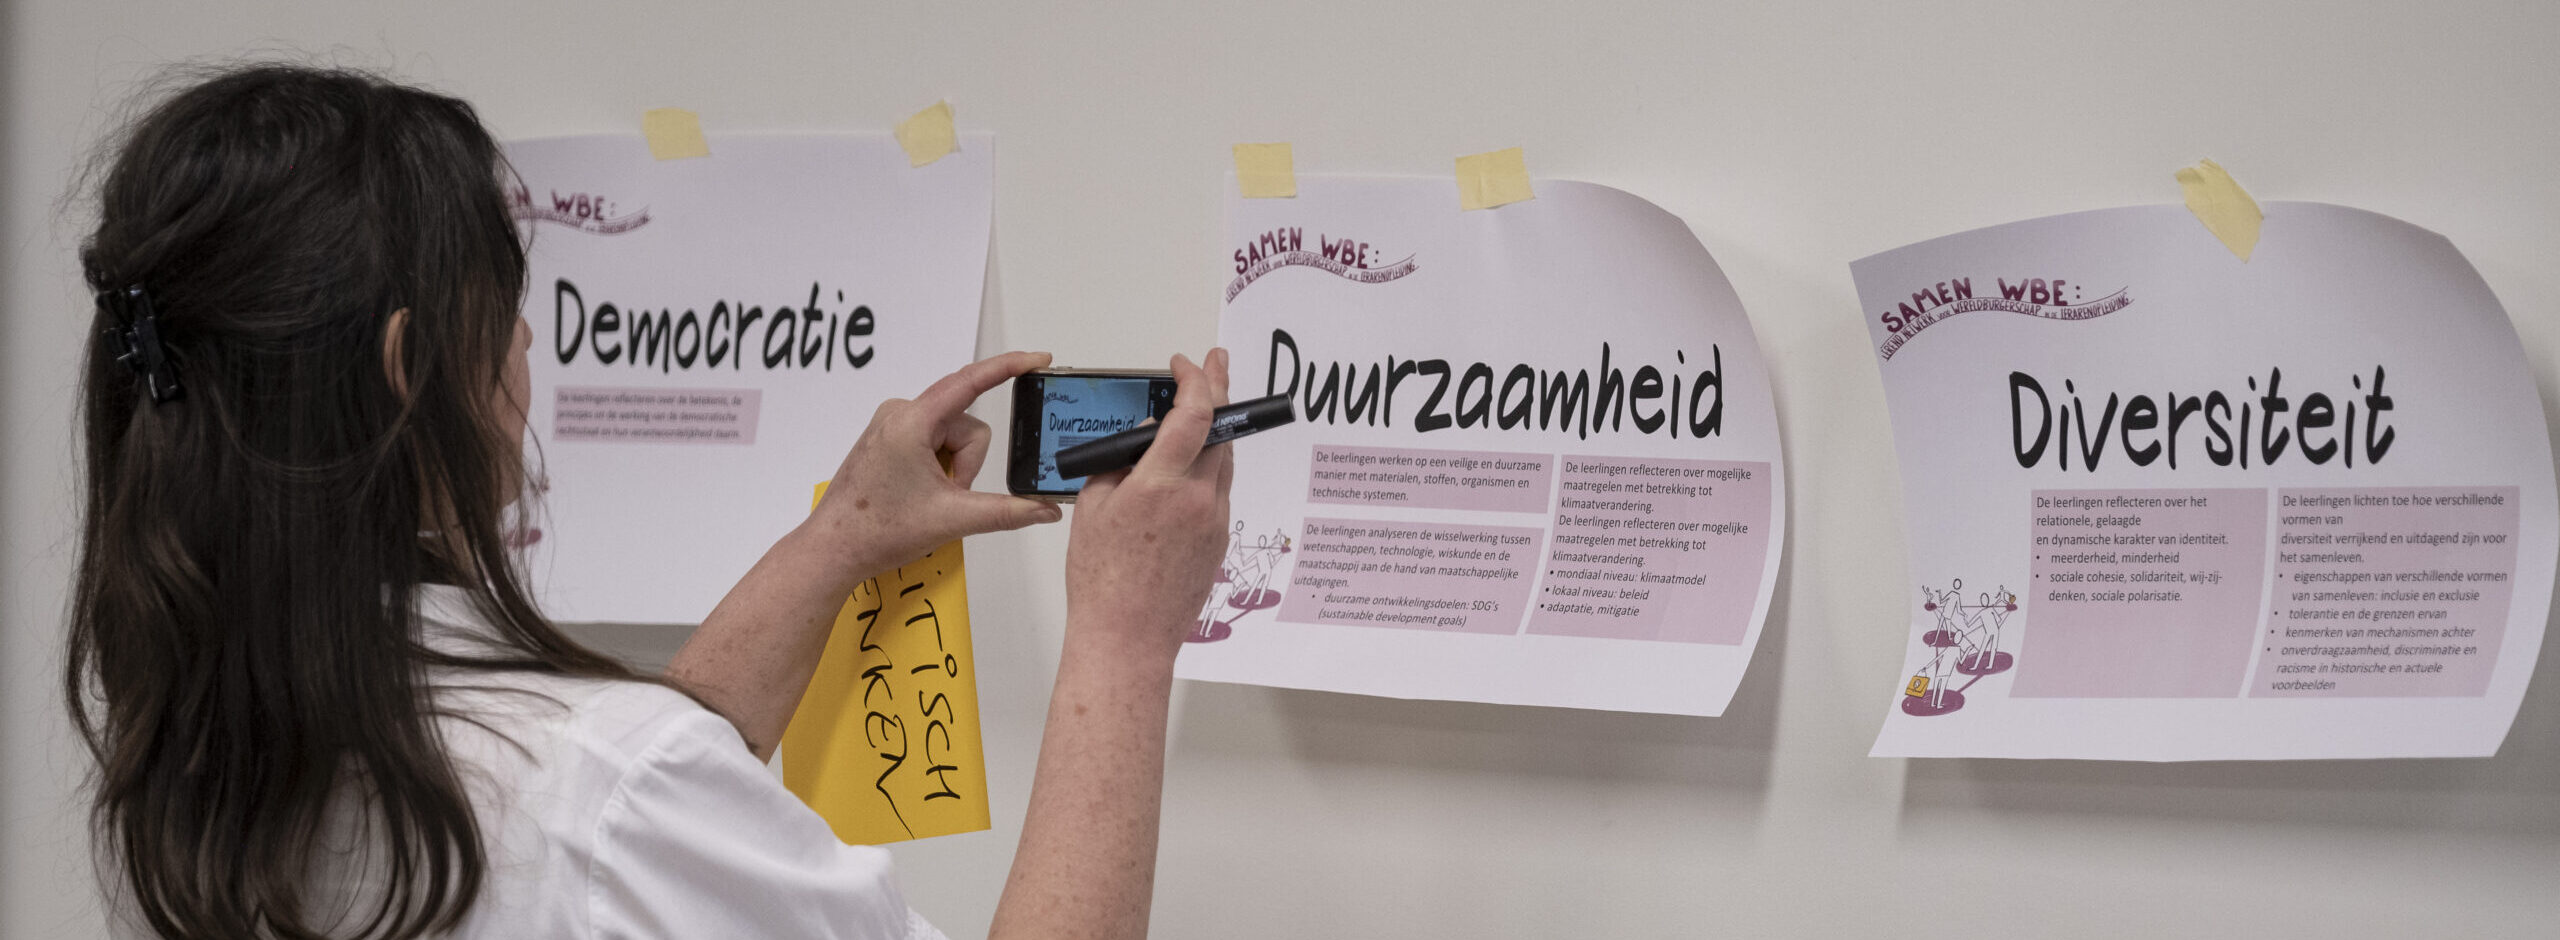 WBE:
Democratie
De leerlingen reflecteren over de betekenis, de
principes en de werking van de democratische
rechtsstaat en hun verantwoordelijkheid daarin.
KRITISCH
DENKEN
Duurzaamheid
SAMEN WBE:
LEREND NETWERK voor WERELDBURGERSCHAP in de LERARENOPLEIDING
Duurzaamheid
De leerlingen werken op een veilige en duurzame
manier met materialen, stoffen, organismen en
technische systemen.
De leerlingen analyseren de wisselwerking tussen
wetenschappen, technologie, wiskunde en de
maatschappij aan de hand van maatschappelijke
uitdagingen.
• duurzame ontwikkelingsdoelen: SDG's
(sustainable development goals)
De leerlingen reflecteren over mogelijke
maatregelen met betrekking tot
klimaatverandering.
De leerlingen reflecteren over mogelijke
maatregelen met betrekking tot
klimaatverandering.
• mondiaal niveau: klimaatmodel
• lokaal niveau: beleid
• adaptatie, mitigatie
SAMEN WBE:
LEREND NETWERK voor WERELDBURGERSCHAP in de LERARENOPLEIDING
Diversiteit
De leerlingen reflecteren over het
relationele, gelaagde
en dynamische karakter van identiteit.
• meerderheid, minderheid
• sociale cohesie, solidariteit, wij-zij-
denken, sociale polarisatie.
De leerlingen lichten toe hoe verschillende
vormen van
diversiteit verrijkend en uitdagend zijn voor
het samenleven.
• eigenschappen van verschillende vormen
van samenleven: inclusie en exclusie
• tolerantie en de grenzen ervan
• kenmerken van mechanismen achter
• onverdraagzaamheid, discriminatie en
racisme in historische en actuele
voorbeelden